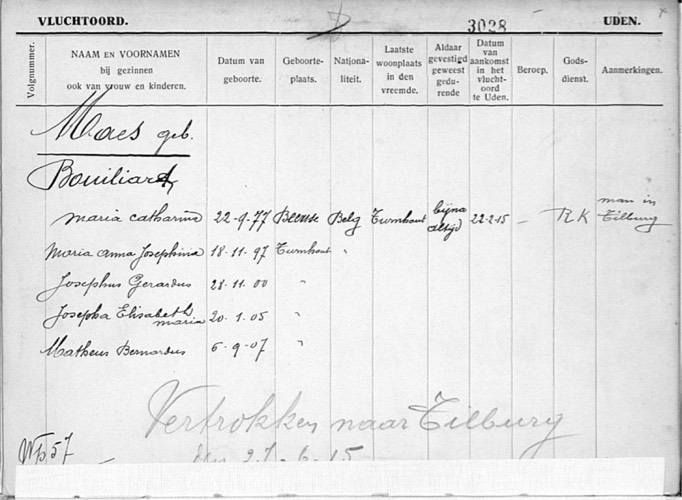 VLUCHTOORD. 3028 UDEN.
Volgnummer. NAAM EN VOORNAMEN bij gezinnen ook van vrouw en kinderen. Datum van geboorte. Geboorte-plaats. Nationa-liteit. Laatste woonplaats in den vreemde. Aldaar gevestigd geweest gedu-rende Datum van aankomst in het vlucht-oord te Uden. Beroep. Gods-dienst. Aanmerkingen.
Maes geb.
Bouiliard
maria catharina 22-9-77 Beerse Belg Turnhout bijna altijd 22-2-15 – RK man in Tilburg
Maria Anna Josephina 18-11-97 Turnhout "
Josephus Gerardus 28-11-00 "
Josepha Elisabeth maria 20-1-05 "
Matheus Bernardus 6-9-07 "
Vertrokken naar Tilburg
57 – 27-6-15